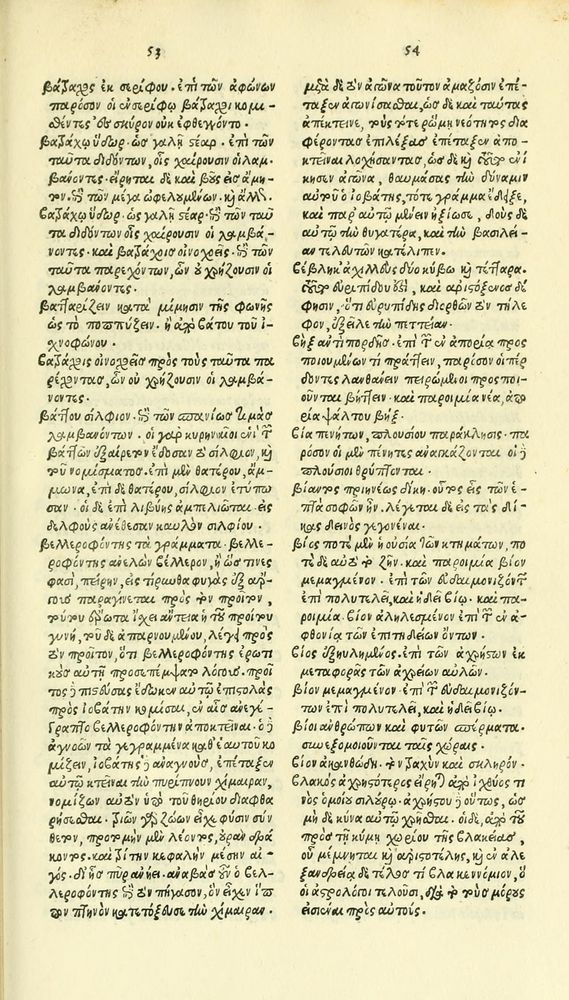 53
βάτραχος ἐκ σερίφου. ἐπὶ τῶν ἀφώνων
παρόσον οἱ ἐν σερίφῳ βάτραχοι κομι-
σθέντες εἰς σκῦρον οὐκ ἐφθέγγοντο.
βατράχῳ ὕδωρ. ὡς γαλῇ στέαρ. ἐπὶ τῶν
ταῦτα διδόντων, οἷς χαίρουσιν οἱ λαμ-
βάνοντες. εἴρηται δὲ καὶ βοῦς εἰς ἀμη-
τόν. ἐπὶ τῶν μέγα ὠφελουμένων. καὶ ἄλλο.
βατράχῳ ὕδωρ. ὡς γαλῇ στέαρ. ἐπὶ τῶν ταῦ
τα διδόντων οἷς χαίρουσιν οἱ λαμβά-
νοντες. καὶ βατράχοις οἰνοχοεῖς. ἐπὶ τῶν
ταῦτα παρεχόντων, ὧν οὐ χρῄζουσιν οἱ
λαμβάνοντες.
βατταρίζειν κατὰ μίμησιν τῆς φωνῆς
ὡς τὸ ποππύζειν. ἢ ἀπὸ βάττου τοῦ ἰ-
χνοφώνου.
βατράχοις οἰνοχοεῖς πρὸς τοὺς ταῦτα πα
ρέχοντας, ὧν οὐ χρῄζουσιν οἱ λαμβά-
νοντες.
βάττου σίλφιον. ἐπὶ τῶν σπανίους τιμὰς
λαμβανόντων. οἱ γὰρ κυρηναῖοι ἑνὶ τῶν
βαττιῶν ἐξαίρετον ἔδοσαν τὸ σίλφιον, καὶ
τοῦ νομίσματος. ἐπὶ μὲν θατέρου, ἄμ-
μωνα, ἐπὶ δὲ θατέρου, σίλφιον ἐτύπω
σαν. οἱ δὲ ἐπὶ λιβύης ἀμπελιῶται εἰς
δελφοὺς ἀνέθεσαν καυλὸν σιλφίου.
βελλεροφόντης τὰ γράμματα. βελλε-
ροφόντης ἀνελὼν βέλλερον, ἢ ὥς τινες
φασὶ, πείρην, εἰς τίρυνθα φυγὰς ἐξ ἄρ-
γους παραγίνεται πρὸς τὸν προῖτον,
τούτου ἔρωτα ἴσχει ἄντεια ἡ τοῦ προίτου
γυνὴ, τοῦ δὲ ἀπαρνουμένου, λέγει πρὸς
τὸν προῖτον, ὅτι βελλεροφόντης ἐρωτι
κοὺς αὐτῇ προσέπεμψε λόγους. προῖ
τος δὲ πιστεύσας ἔδωκεν αὐτῷ ἐπιστολὰς
πρὸς ἰοβάτην κομίσαι, ἐν αἷς ἀνεγέ-
γραπτο βελλεροφόντην ἀποκτεῖναι. ὁ δὲ
ἀγνοῶν τὰ γεγραμμένα καθ' ἑαυτοῦ κο
μίζειν, ἰοβάτης δὲ ἀναγνοὺς, ἐπέταξεν
αὐτῷ κτεῖναι τὴν πυρίπνουν χίμαιραν,
νομίζων αὐτὸν ὑπὸ τοῦ θηρίου διαφθα
ρήσεσθαι. τὸ ζῷον εἶχε φύσιν σύν
θετον, προτομὴν μὲν λέοντος, οὐρὰν δρά
κοντος. καὶ τρίτην κεφαλὴν μέσην αἰ-
γός. δι' ἧς πῦρ ἀνίει. ἀναβὰς οὖν ὁ βελ-
λεροφόντης τὸν πήγασον, ὃν εἶχεν ἵπ
πον πτηνὸν κατετόξευσε τὴν χίμαιραν.
54
μετὰ δὲ τὸν ἀγῶνα τοῦτον ἀμαζόσιν ἐπέ-
ταξεν ἀγωνίσασθαι, ὡς δὲ καὶ ταύτας
ἀπέκτεινε, τούς τε ῥώμῃ νεότητος δια
φέροντας ἐπιλέξας ἐπέταξεν ἀπο-
κτεῖναι λοχήσαντας, ὡς δὲ καὶ τοῦτον ἐνί
κησεν ἀγῶνα, θαυμάσας τὴν δύναμιν
αὐτοῦ ὁ ἰοβάτης, τότε γράμματα ἔδειξε,
καὶ παρ' αὐτῷ μένειν ἠξίωσε, δοὺς δὲ
αὐτῷ τὴν θυγατέρα, καὶ τὴν βασιλεί-
αν τελευτῶν κατέλιπεν.
βέβληκ' ἀχιλλεὺς δύο κύβω καὶ τέτταρα.
τοῦτο εὐριπίδου ἐστὶ, καὶ ἀριστόξενός
φησιν, ὅτι εὐριπίδης διορθῶν τὸν τήλε
φον, ἐξεῖλε τὴν πεττείαν.
βὴξ ἀντὶ πορδῆς. ἐπὶ τῶν ἐν ἀπορίᾳ προσ
ποιουμένων τι πράττειν, παρόσον οἱ πέρ
δοντες λανθάνειν πειρώμενοι προσποι-
οῦνται βήττειν. καὶ παροιμία νέα, ἀπο
ρία ψάλτου βήξ.
βία πενήτων, πλουσίου παράκλησις. πα
ρόσον οἱ μὲν πένητες ἀναγκάζονται οἱ δὲ
πλούσιοι θρύπτονται.
βίαντος πριηνέως δίκη. οὗτος εἷς τῶν ἑ-
πτὰ σοφῶν ἦν. λέγεται δὲ εἰς τὰς δί-
κας δεινὸς γεγονέναι.
βίος ποτὲ μὲν ἡ οὐσία τῶν κτημάτων, πο
τὲ δὲ αὐτὸ τὸ ζῆν. καὶ παροιμία βίον
μεμαγμένον. ἐπὶ τῶν εὐδαιμονιζόντων
ἐπὶ πολυτελεῖ, καὶ ἡδεῖ βίῳ. καὶ πα-
ροιμία. βίον ἀληλεσμένον ἐπὶ τῶν ἐν ἀ-
φθονίᾳ τῶν ἐπιτηδείων ὄντων.
βίος ἐξηυλημένος. ἐπὶ τῶν ἀχρήστων ἐκ
μεταφορᾶς τῶν ἀχρείων αὐλῶν.
βίον μεμαγμένον. ἐπὶ τῶν εὐδαιμονιζόν-
των ἐπὶ πολυτελεῖ, καὶ ἡδεῖ βίῳ.
βίοι ἀνθρώπων καὶ φυτῶν σπέρματα.
συνεξομοιοῦνται ταῖς χώραις.
βίον ἀκανθώδη. τὸν τραχὺν καὶ σκληρόν.
βλακὸς ἀχρηστότερος εἴρηται ἀπὸ ἰχθύος τι
νὸς ὁμοίου σιλούρῳ. ἀχρήστου δὲ οὕτως, ὡς
μὴ δὲ κύνα αὐτῷ χρῆσθαι. οἱ δὲ, ἀπὸ τοῦ
πρὸς τῇ κύμῃ χωρίου τῆς βλακείας,
οὗ μέμνηται καὶ ἀριστοτέλης, καὶ ἐν ἀλε
ξανδρείᾳ δὲ τέλος τι βλακεννόμιον, ὃ
οἱ ἀστρολόγοι τελοῦσι, διὰ τὸ τοὺς μώρους
εἰσιέναι πρὸς αὐτούς.